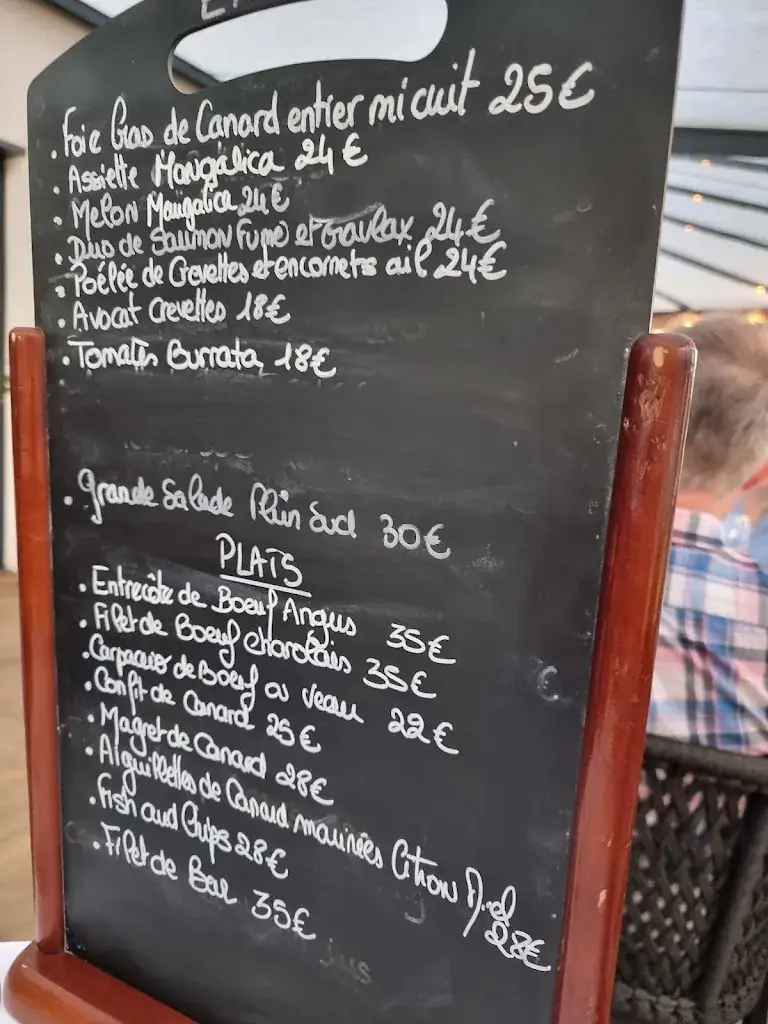 . Foie Gras de Canard entier mi cuit 25€
. Assiette Mangalica 24€
. Melon Mangalica 24€
. Duo de Saumon Fumé et Gravlax 24€
. Poêlée de Crevettes et encornets ail 24€
. Avocat Crevettes 18€
. Tomates Burrata 18€
. Grande Salade Plein Sud 30€
PLATS
. Entrecôte de Boeuf Angus 35€
. Filet de Boeuf charolais 35€
. Carpaccio de Boeuf ou veau 22€
. Confit de Canard 25€
. Magret de Canard 28€
. Aiguillettes de Canard marinées Citron Miel 28€
. Fish and Chips 28€
. Filet de Bar 35€